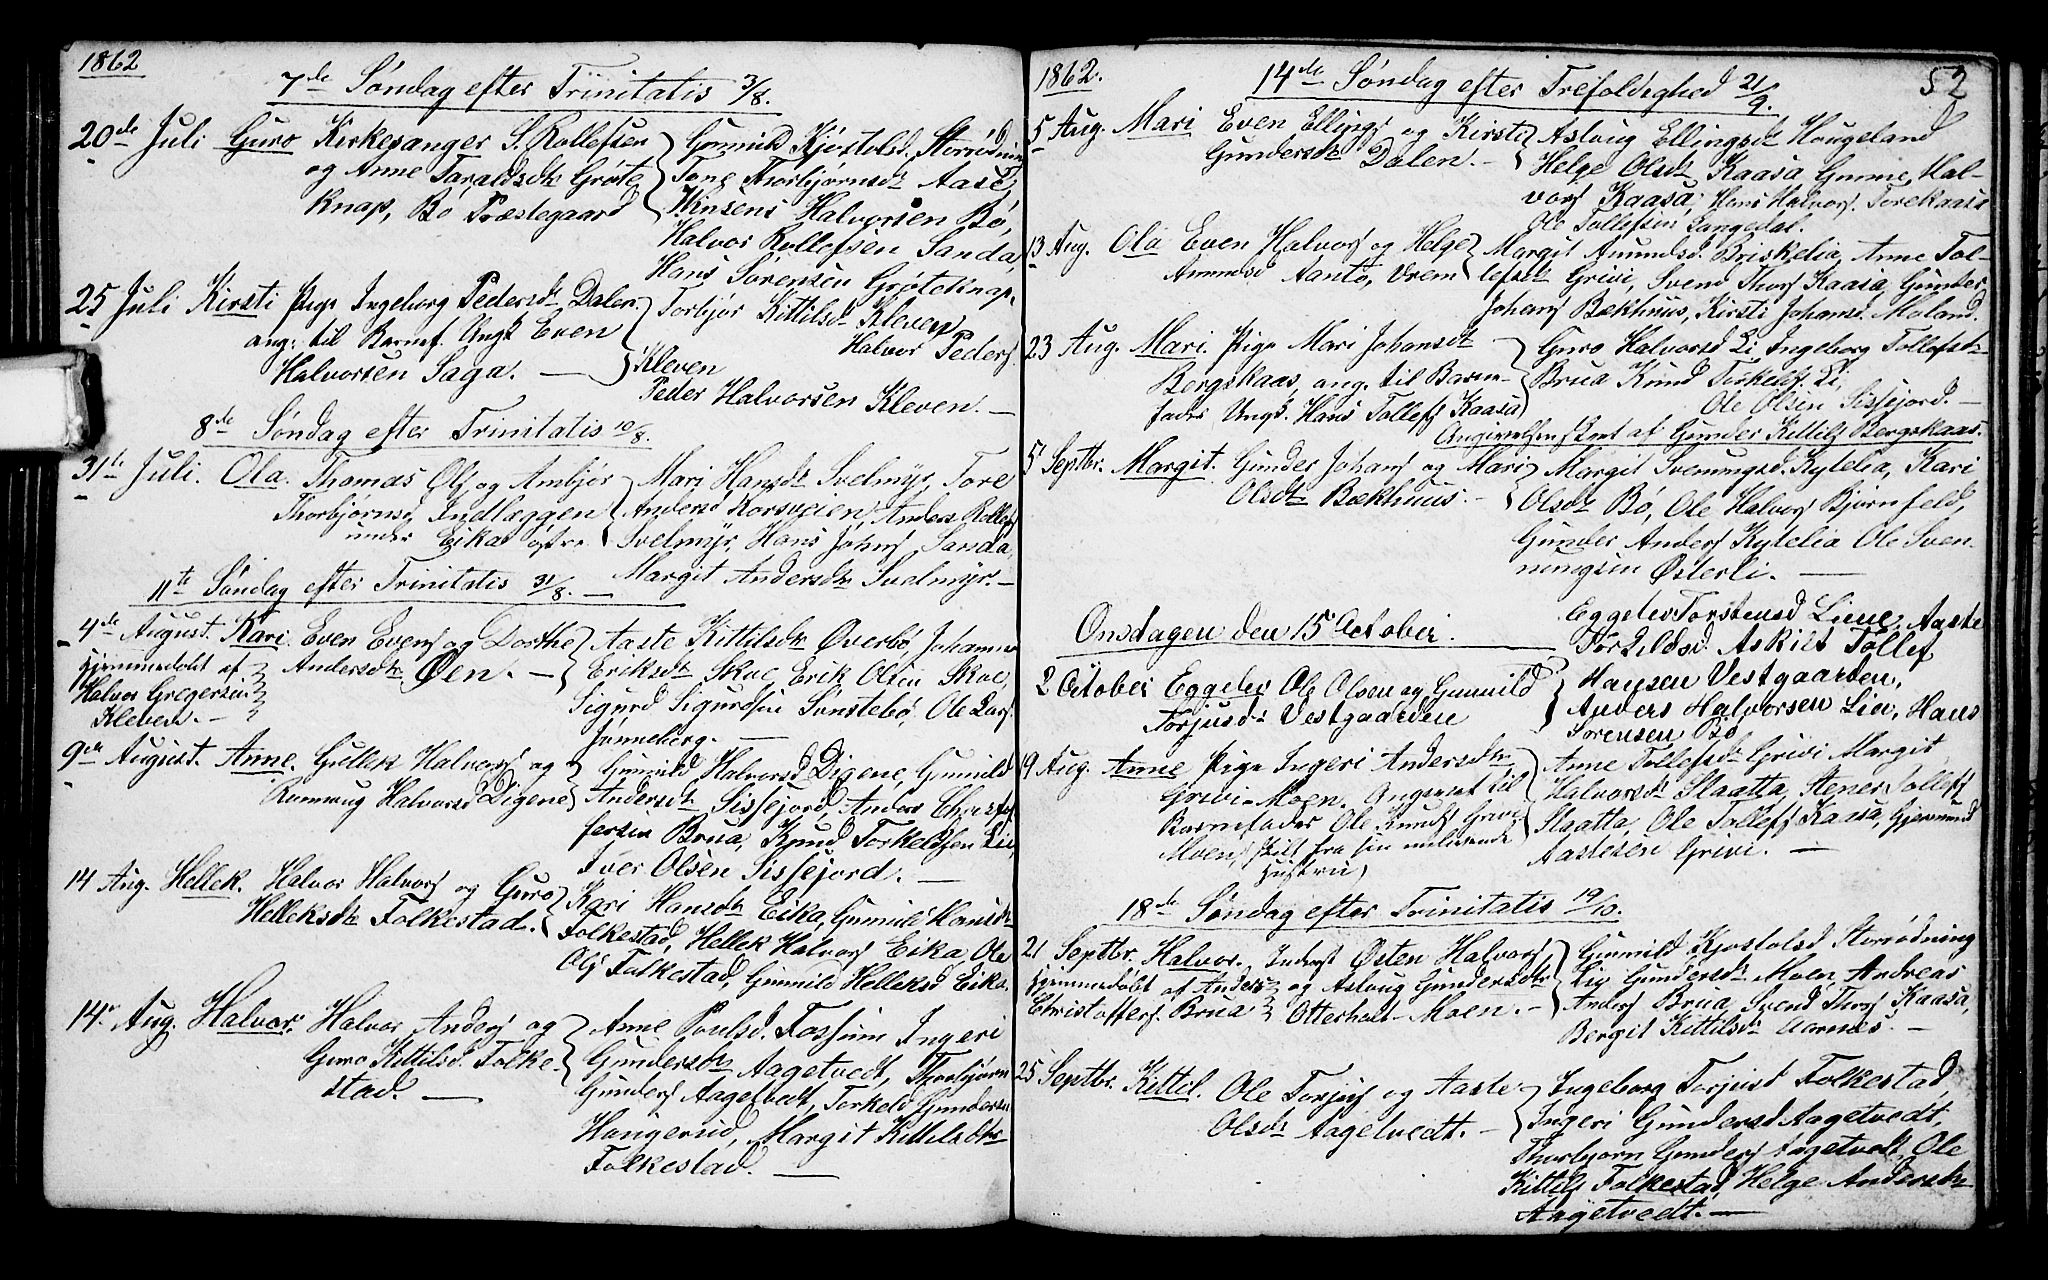 1862
7de Søndag efter Trinitatis 3/8.
20de Juli Guro Kirkesanger S. Rollefsen
og Anne Taraldsdtr Grøte
knap, Bø Præstegaard
Gunnild Kjøstolsd. Storrødning
Tone Thorbjørnsdtr Aase,
Halvorsen Bø,
Halvor Rollefsen Sanda,
Hans Sørensen Grøteknap.
25 Juli Kirsti Pige Ingeborg Pedersdtr Dalen
ang. til Barnef. Ungk Even
Halvorsen Saga. —
Torbjør Kittilsdtr Kleven
Halvor Peders
Kleven
Peder Halvorsen Kleven. —
8de Søndag efter Trinitatis 10/8.
31te Juli. Ola. Thomas Ols og Ambjør
Thorbjørnsd Indlæggen
under Eika
Mari Hansdtr Svelmyr, Tore
Andersd Korsveien, Anders Rollefs
Svelmyr, Hans Johns Sanda,
Margit Andersdtr Svelmyr. —
11te Søndag efter Trinitatis 31/8. —
4de August. Kari. Even Evens og Dorthe
Andersdtr Øen. —
hjemmedøbt af
Halvor Gregersen
Kleven. —
Aaste Kittilsdtr Øverbø, Johanne
Eriksdtr Skoe, Erik Olsen Skoe,
Sigurd Sigurdsen Sønstebø, Ole Lars.
Jønneberg. —
9de August. Anne. Gullek Halvors og
Ranveug Halvorsd Digene
Gunnild Halvorsd Digene, Gunnild
Andersdtr Sissejord, Anders Christof
fersen Brua, Knud Torkeldsen Lie,
Iver Olsen Sissejord. —
14 Aug. Hellek. Halvor Halvors og Guro
Helleksdtr Folkestad.
Kari Hansdtr Eika, Gunnild Hansdtr
Folkestad, Hellek Halvors Eika, Ole
Ols Folkestad, Gunnild Helleksd Eika.
14. Aug. Halvor. Halvor Anders og
Guro Kittilsd. Folke-
stad. —
Anne Poulsd. Fossum Ingeri
Gundersdtr Aagetvedt, Thorbjørn
Gunders Aagetvedt, Torkeld Gundersen
Haugerud, Margit Kittilsdtr
Folkestad. —
1862.
14de Søndag efter Trefoldighed 21/9.
52
5 Aug. Mari Even Ellings og Kirsti
Gundersdtr Dalen. —
Aslaug Ellingsdt Haugeland
Helge Olsdtr Kaasa Gunne, Hal-
vors Kaasa, Hans Halvors. Torekaasa
Ole Tollefsen Langedal.
13 Aug. Ola Even Halvors og Helge
Amunsd Aanto, Vrem
Margit Amundsd. Briskelia, Anne Tol-
lefsdt Grivi, Svend Thors Kaasa, Gunder
Johans Bækhuus, Kirsti Johansd. Moland.
23 Aug. Mari. Pige Mari Johansdtr
Bergskaas, ang. til Barne-
fader Ungk. Hans Tollefs Kaasa
Guro Halvorsd Li Ingeborg Tollefsdt
Brua Knud Torkelds. Li,
Ole Olsen Sissejord. —
Angivelsen skeet af Gunder Kittils Bergskaas.
5 Septbr. Margit. Gunder Johans og Mari
Olsdtr Bækhuus. —
Margit Svenungsd. Kytelia, Kari
Olsdtr Bø, Ole Halvors Bjørnfeld,
Gunder Anders Kytelia Ole Sven-
nungsen Østerli. —
Onsdagen den 15 October.
2 October Eggelev Ole Olsen og Gunnild
Torjusdtr Vestgaarden
Eggelev Torstensd Liene, Aaste
Torkildsd. Askilt Tollef
Hansen Vestgaarden,
Anders Halvorsen Lien, Hans
Sørensen Bø
19 Aug. Anne Pige Ingeri Andersdtr
Grivi-Moen. Angivet til
Barnefader Ole Knuds Grivi
Moen, (skilt fra sin
Hustru)
Anne Tollefsdtr Grivi Margit
Halvorsdtr Slaatta, Stener Tollefs
Slaatta, Ole Tollefs Kaasa, Gjermund
Aastesen Grivi. —
18de Søndag efter Trinitatis 19/10.
21 Septbr. Halvor. Inderst Østen Halvors
og Aslaug Gundersdtr
Otterholt-Moen. —
hjemmedøbt af Anders
Christoffers. Brua
Gunnild Kjostolsd Storrødning
Liv Gundersdtr Moen, Andreas
Anders Brua, Svend Thors Kaasa,
Bergit Kittilsdtr Aarnes. —
25 Septbr. Kittil. Ole Torjus og Aaste
Olsdtr Aagetvedt. —
Ingeborg Torjusd Folkestad,
Ingeri Gundersd Aagetvedt,
Thorbjørn Gunders Aagetvedt, Ole
Kittils Folkestad, Helge Andersdtr
Aagetvedt. —